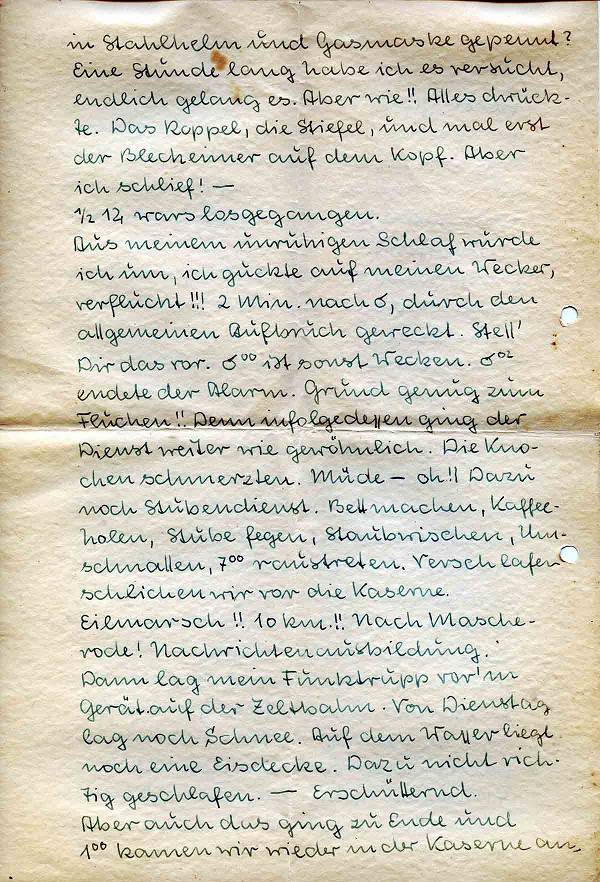 in Stahlhelm und Gasmaske gepennt?
Eine Stunde lang habe ich es versucht,
endlich gelang es. Aber wie!! Alles drück-
te. Das Koppel, die Stiefel, und mal erst
der Blecheimer auf dem Kopf. Aber
ich schlief! —
1/2 12 wars losgegangen.
Aus meinem unruhigen Schlaf wurde
ich um, ich guckte auf meinen Wecker,
verflucht!!! 2 Min. nach 6, durch den
allgemeinen Aufbruch geweckt. Stell'
Dir das vor. 6⁰⁰ ist sonst Wecken. 6⁰²
endete der Alarm. Grund genug zum
Fluchen!! Denn infolgedessen ging der
Dienst weiter wie gewöhnlich. Die Kno-
chen schmerzten. Müde — oh!! Dazu
noch Stubendienst. Bettmachen, Kaffee-
holen, Stube fegen, Staubwischen, Um-
schnallen, 7⁰⁰ raustreten. Verschlafen
schlichen wir vor die Kaserne.
Eilmarsch!! 10 km.!! Nach Masche-
rode! Nachrichtenausbildung.
Dann lag mein Funktrupp vor'm
Gerät auf der Zeltbahn. Von Dienstag
lag noch Schnee. Auf dem Wasser liegt
noch eine Eisdecke. Dazu nicht rich-
tig geschlafen. — Erschütternd.
Aber auch das ging zu Ende und
1⁰⁰ kamen wir wieder in der Kaserne an.